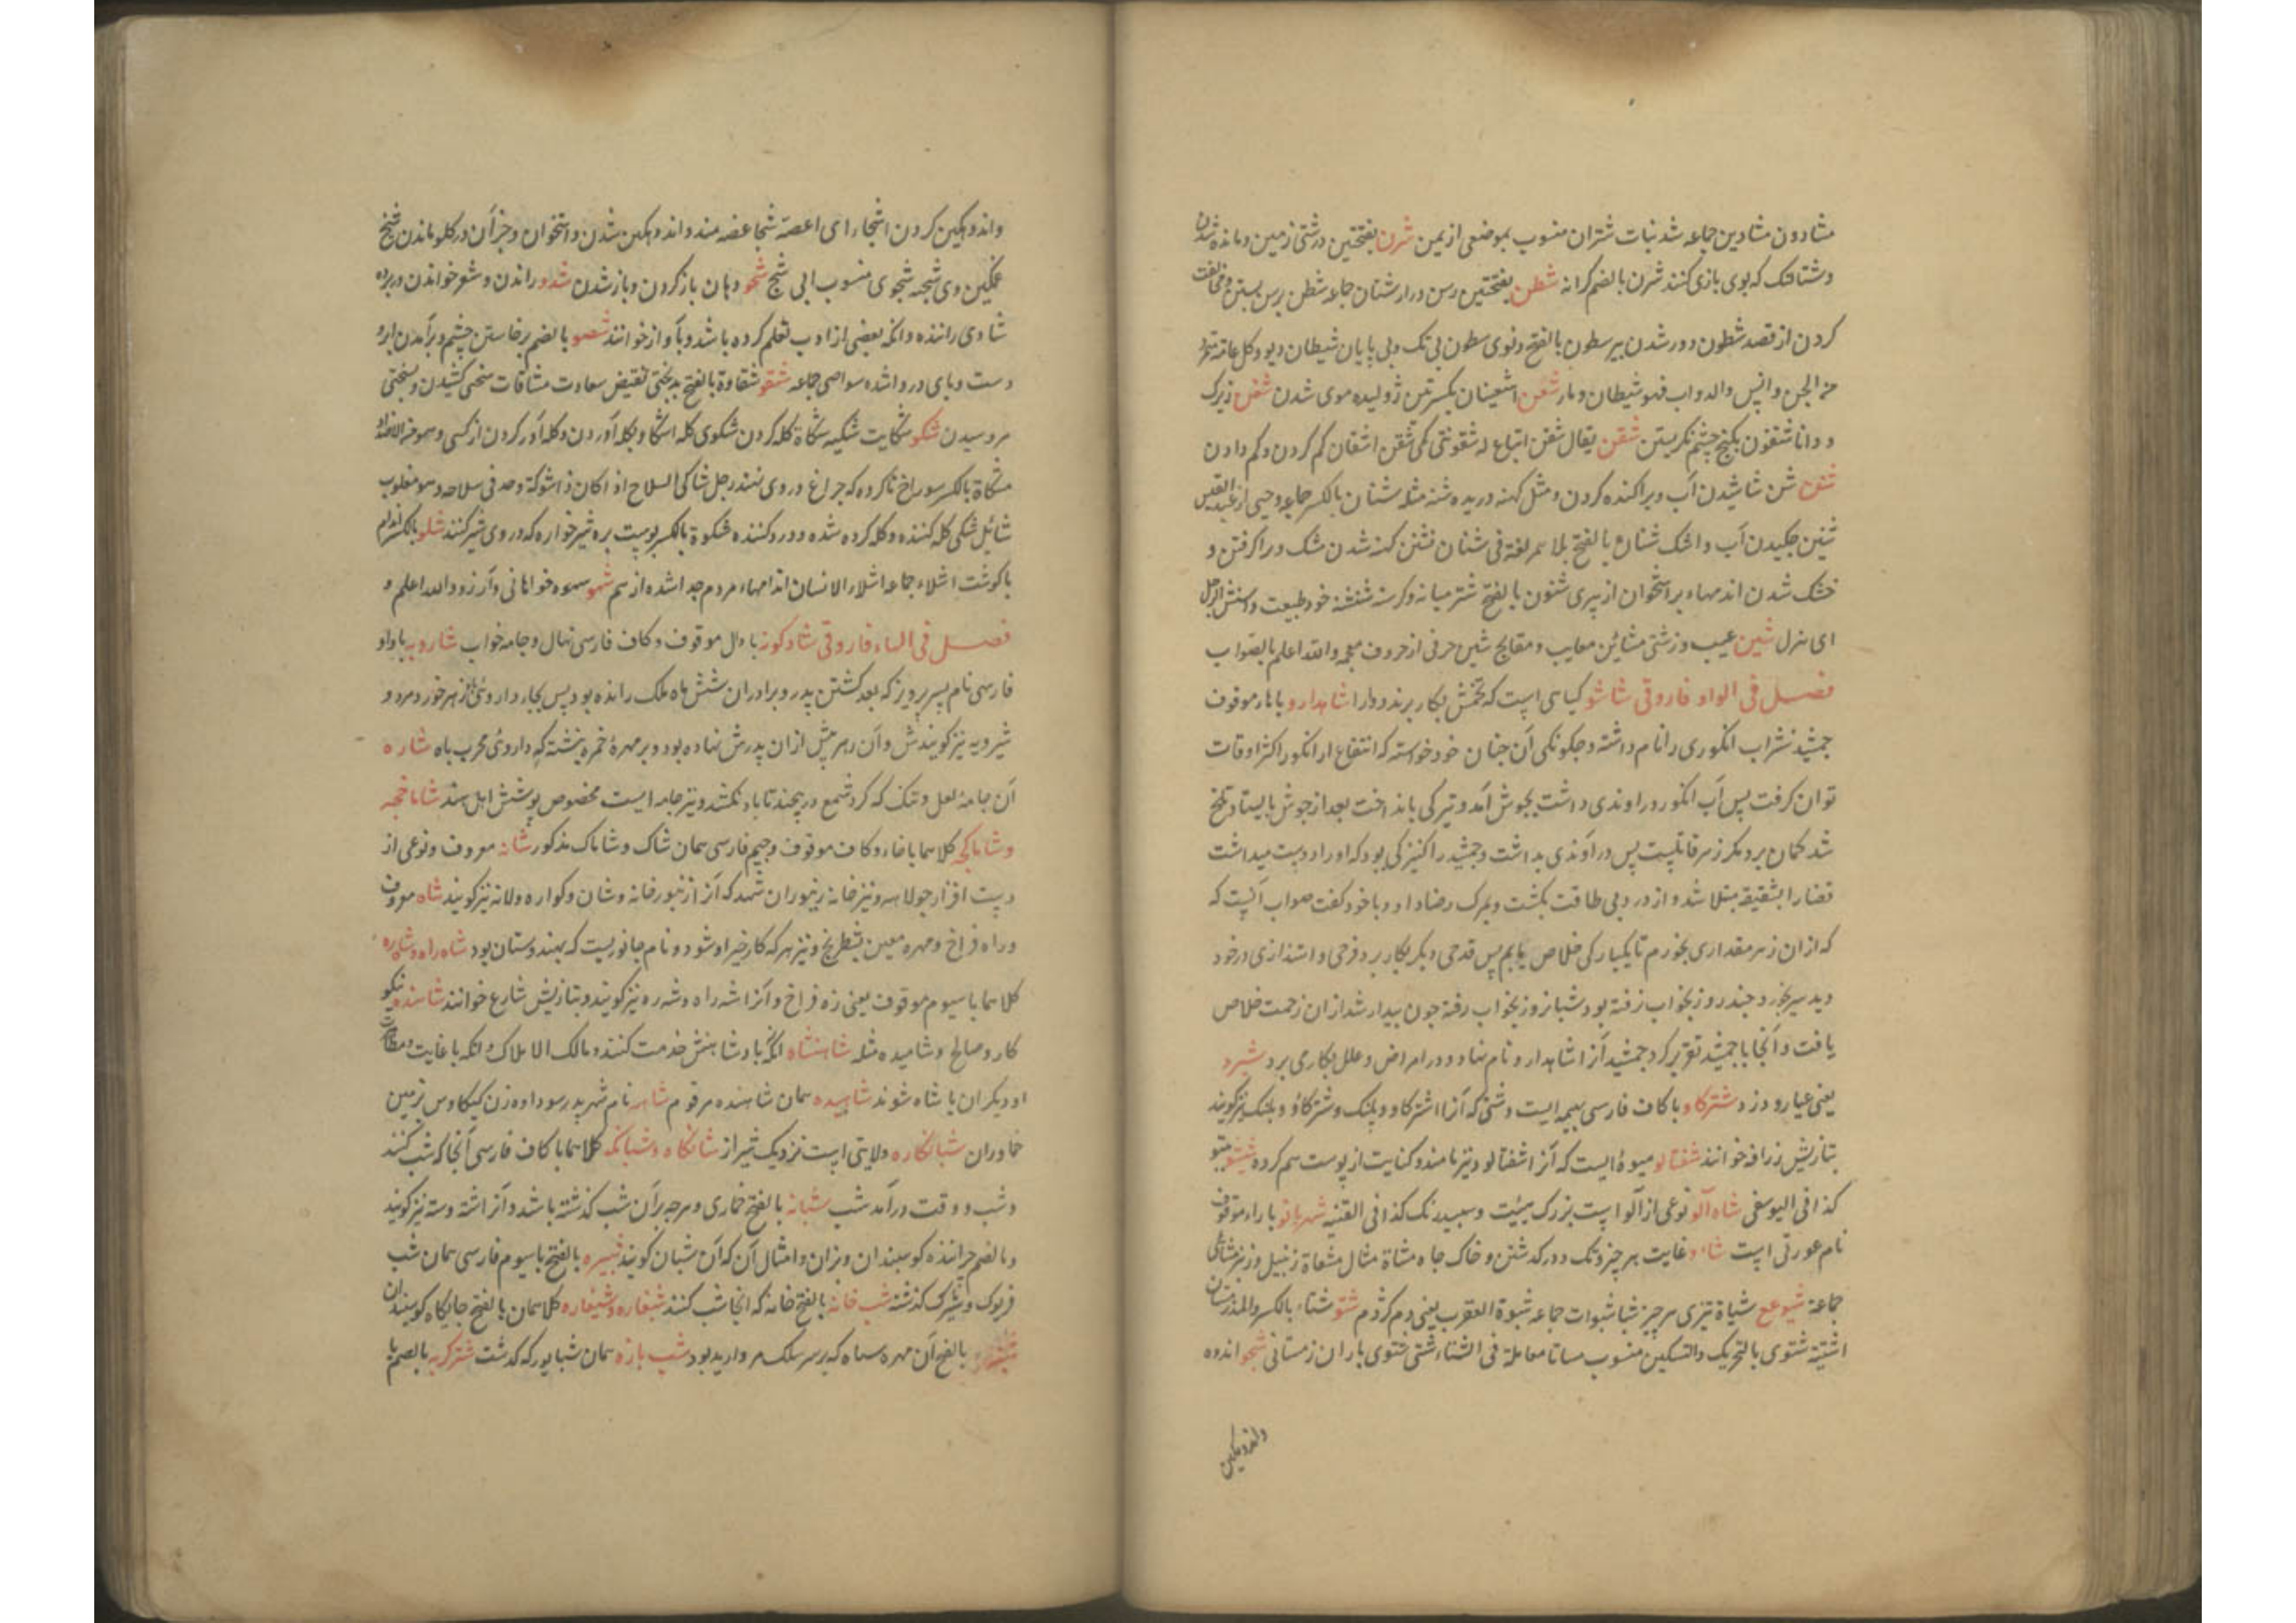 مشادون مشادین جماعه شد نبات شتران منسوب بموضعی از یمین شرن بفتحتین درشتی زمین و مانده شدن
کردن از قصد شطون دور شدن بیر سطون بالفتح ونوی سطون بی تک وبی پایان شیطان دیو وکل عاته متمرد
من الجن والانس والدواب فهو شیطان ومار شعن اشعینان بکسرتین ژولیده موی شدن شفن زیرک
ودانا شفون بکنج چشم نکریستن شقن یقال شقن اتباع له شقونتی کمی شقن اشقان کم کردن وکم دادن
شنن شن شاشیدن آب و پراکنده کردن ومشک کهنه دریده شنه مثله شنان بالکسر جماعه وحیی از عبد القیس
شنین چکیدن آب واشک شنان بالفتح بلا همز لغة فی شنان تشنن کهنه شدن مشک و درا کرفتن و
خشک شدن اندامهاء بر استخوان از پیری شنون بالفتح شتر میانه وکرسنه شنشنه خو وطبیعت
ای هزل شین عیب وزشتی مشائن معایب ومقابح شین حرفی از حروف معجمه والله اعلم بالصواب
فصل فی الواو فاروقی شاشو کیاهی است که تخمش بکار برند ودارا شاهدارو با هاء موقوف
جمشید شراب انکوری را نام داشته وچکونکی آن چنان خود خواسته که انتفاع از انکور اکثر اوقات
توان کرفت پس آب انکور در اوندی داشت بجوش آمد وتیرکی بانداخت بعد از جوش بایستاد وتلخ
شد کمان برد مکر زهر قاتلیست پس در آوندی بداشت وجمشید را کنیزکی بود که او را دوست میداشت
قضا را بشقیقه مبتلا شد واز درد بی طاقت بکشت وبمرک رضا داد وبا خود کفت صواب آنست که
که ازان زهر مقداری بخورم تا یکبارکی خلاص یابم پس قدحی دیکر بکار برد فرحی واشدازی در خود
دید سیر بخورد چند روز بخواب نرفته بود شبانروز بخواب رفته چون بیدار شد ازان زحمت خلاص
یافت و آنجا با جمشید تقریر کرد جمشید آنرا شاهدارو نام نهاد ودر امراض وعلل بکار می برد شبرد
یعنی عیار ودزد شترکاو با کاف فارسی بهیمه ایست وشتی که آنرا اشترکاو وپلنک وشترکاو وپلنک نیز کویند
بتازیش زرافه خوانند شفتالو میوهٔ ایست که آنرا شفتالود نیز نامند وکنایت از بوسه هم کرده
کذا فی الیوسفی شاه آلو نوعی از آلو است بزرک هیئت وسپید رنک کذا فی القنیه شهربانو با راء موقوف
نام عورتی است شاء وغایت هر چیز وتک ودرکه شتن وخاک چاه مشاة مثال مشعاة زنبیل
جماعه شبو عع شباة تیزی هر چیز شبا شبوات جماعه شبوة العقرب یعنی دم کژدم شتو شتاء بالکسر والمد زمستان
اشتیه شتوی بالتحریک والتسکین منسوب مشاتا معامله فی الشتاء شتی شتوی باران زمستانی شجو اندوه
واندوهکین
واندوهکین کردن اشجاء ای اغصه شجا غصه مند واندوهکین شدن واستخوان وجز آن در کلو ماندن شج
غمکین وی شجیه شجوی منسوب الی شج شحو دهان باز کردن وباز شدن شدو راندن وشعر خواندن وبرده
شادی راننده وانکه بعضی از ادب تعلم کرده باشد وبآواز خوانند شصو بالضم برخاستن چشم وبرآمدن ابرو
دست وپای دروا شده شواصی جماعه شقو شقاوة بالفتح بدبختی نقیض سعادت مشاقات سختی کشیدن وسختی
شکو شکایت شکیه شکاة کله کردن شکوی کله اشکا وبکله آوردن وکله آور کردن از کسی وهو من الاضداد
مشکاة بالکسر سوراخ ناکرده که چراغ در وی نهند رجل شاکی السلاح اذا کان ذا شوکة وحد فی سلاحه وهو مقلوب
شائک شکی کله کننده وکله کرده شده ودرد کننده شکوة بالکسر پوست بره شیرخواره که در وی شیر کنند شلو بالکسر اندام
با کوشت اشلاء جماعه اشلاء الانسان اندامهاء مردم جدا شده از هم شهو شهوه خواهانی وآرزو والله اعلم و
فصل فی الهاء فاروقی شادکونه با دال موقوف وکاف فارسی نهال وجامه خواب شارویه با واو
فارسی نام پسر پرویز که بعد کشتن پدر وبرادران شش ماه ملک رانده بود پس بجاء داروئی زهر خورد ومرد و
شیرویه نیز کویندش وآن زهر پیش ازان پدرش نهاده بود وبر مهرهٔ خمره بنشته که داروئی مجرب باه شاره
آن جامه لعل وتنک که کرد شمع در پیچند تا باد نکشد ونیز جامه ایست مخصوص پوشش اهل هند شاماخچه
وشاماکچه کلاهما با خاء وکاف موقوف وجیم فارسی همان شاک وشاماک مذکور شانه معروف ونوعی از
دست افزار جولاهه ونیز خانه زنبوران شهد که آنرا زنبورخانه وشان وکواره ولانه نیز کویند شاه معروف
وراه فراخ ومهره معین شطرنج ونیز هر که کار خیر او شود ونام جانوریست که بهندوستان بود شاه راه وشاهره
کلاهما با سیوم موقوف یعنی ره فراخ وآنرا شه راه وشه ره نیز کویند وبتازیش شارع خوانند شاهنده نیکو
کار وصالح وشاهیده مثله شاهنشاه انکه بادشاهنش خدمت کنند ومالک الاملاک وانکه با غایت
او دیکران با شاه شوند شاهیده همان شاهنده مرقوم شاهه نام شهر پدر سوداوه زن کیکاوس بزمین
خاوران شبانکاره ولایتی است نزدیک شیراز شبانکاه وشبانکه کلاهما با کاف فارسی آنجا که شب کنند
وشب ووقت درآمد شب شبانه بالفتح خماری وهر چه بران شب کذشته باشد وآنرا شته وسته نیز کویند
وبالضم چراننده کوسبندان وبزان وامثال آن که آن شبان کویند شبیره بالفتح با سیوم فارسی همان شب
شب خانه بالفتح خانه که آنجا شب کنند شبغاره وشیغاره کلاهمان بالفتح جایکاه کوسپندان
بالفتح آن مهره سیاه که بر سر سلک مروارید بود شب بازه همان شبابور که کذشت شترکربه بالضم با